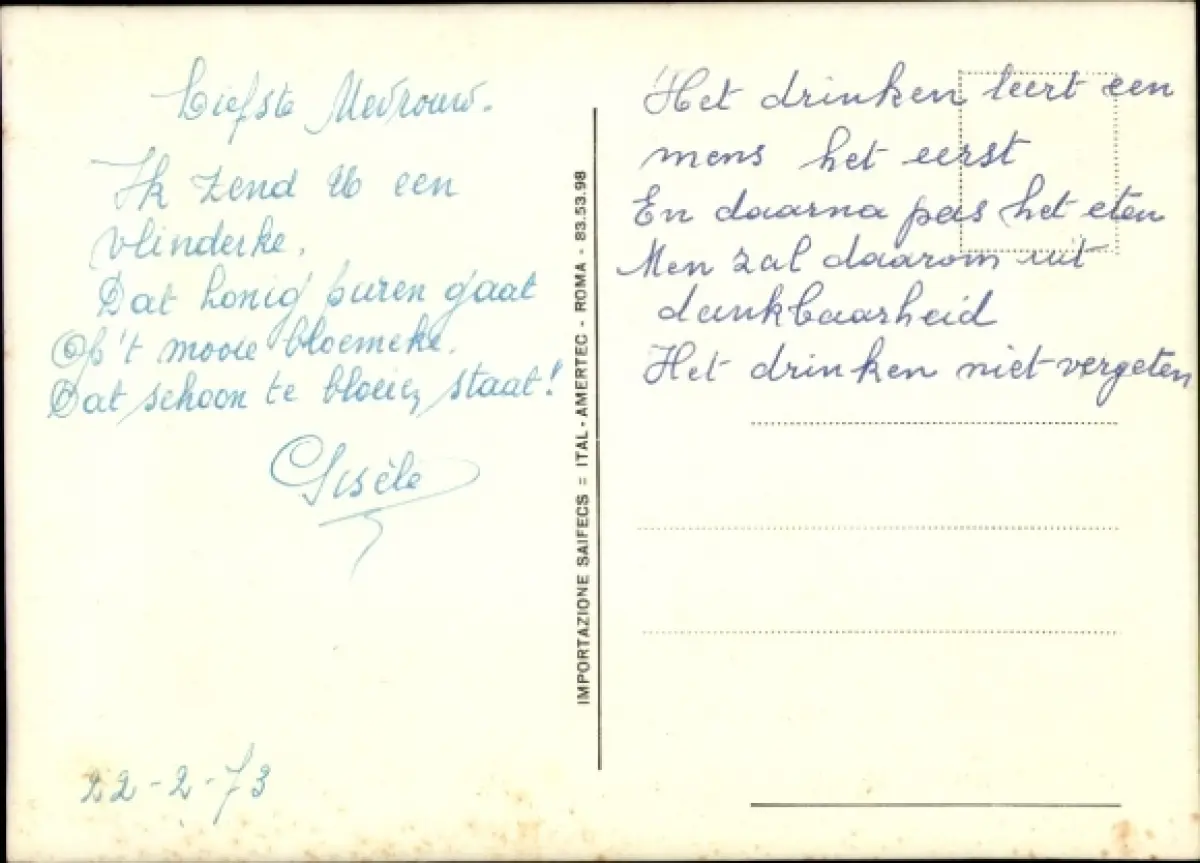 Liefste Mevrouw.
Ik zend U een
vlinderke,
Dat honig puren gaat
Op 't mooie bloemeke.
Dat schoon te bloeien staat!
Gisèle
22-2-73
IMPORTAZIONE SAIFECS = ITAL-AMERTEC - ROMA - 83.53.98
Het drinken leert een
mens het eerst
En daarna pas het eten
Men zal daarom uit
dankbaarheid
Het drinken niet vergeten